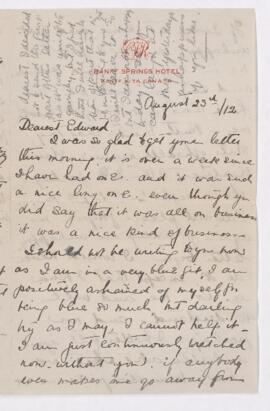 BANFF SPRINGS HOTEL
BANFF, ALTA, CANADA
August 23rd/12
Dearest Edward
I was so glad to get your letter
this morning, it is over a week since
I have had one. and it was such
a nice long one. even though you
did say that it was all on business
it was a nice kind of business.
I should not be writing to you now
as I am in a very blue fit, I am
positively ashamed of myself for
being blue so much but darling
try as I may, I cannot help it.
I am just continuously wretched
now. without you. if anybody
ever makes me go away from